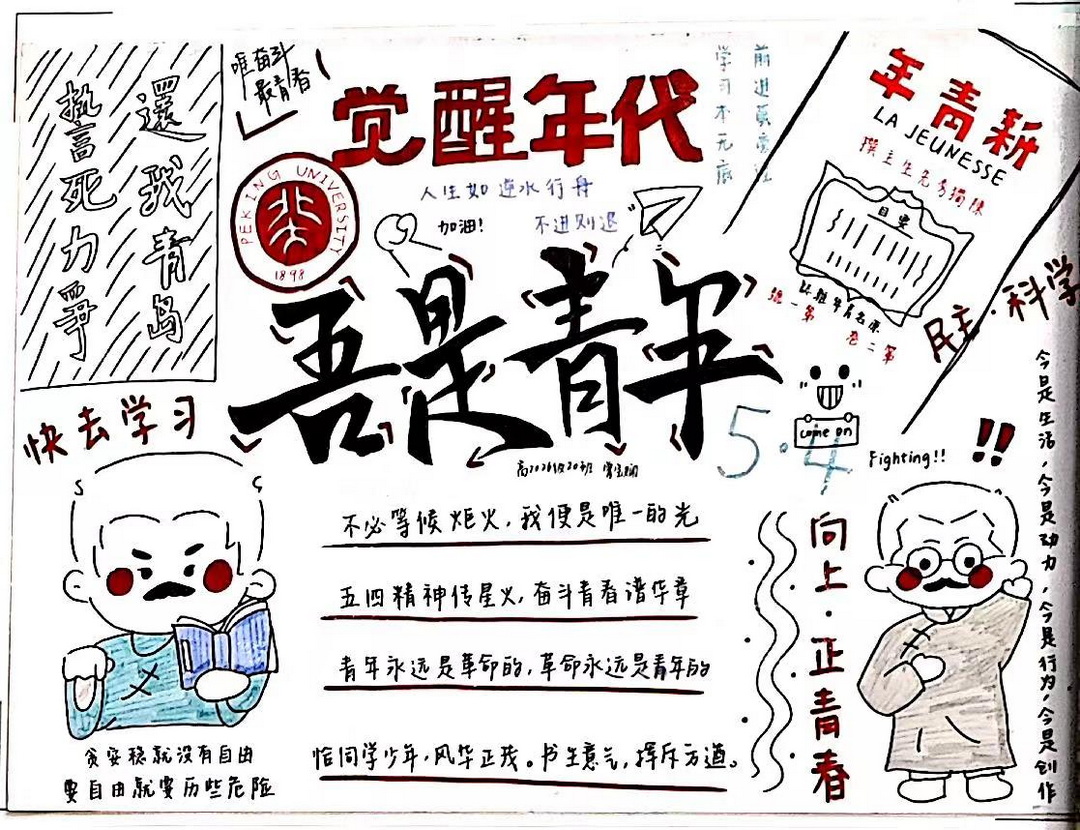 還我青岛
誓死力爭
唯奋斗
最青春
觉醒年代
PEKING UNIVERSITY
1898
人生如逆水行舟
不进则退
加油!
前进
学习本无底
新青年
LA JEUNESSE
陳獨秀先生主撰
目要
第二卷
第一號
民主·科学
吾是青年
快去学习
5·4
come on
Fighting!!
!!
不必等候炬火,我便是唯一的光
五四精神传星火,奋斗青春谱华章
青年永远是革命的,革命永远是青年的
恰同学少年,风华正茂。书生意气,挥斥方遒。
贪安稳就没有自由
要自由就要历些危险
向上·正青春
今是生活,今是动力,今是行为,今是创作